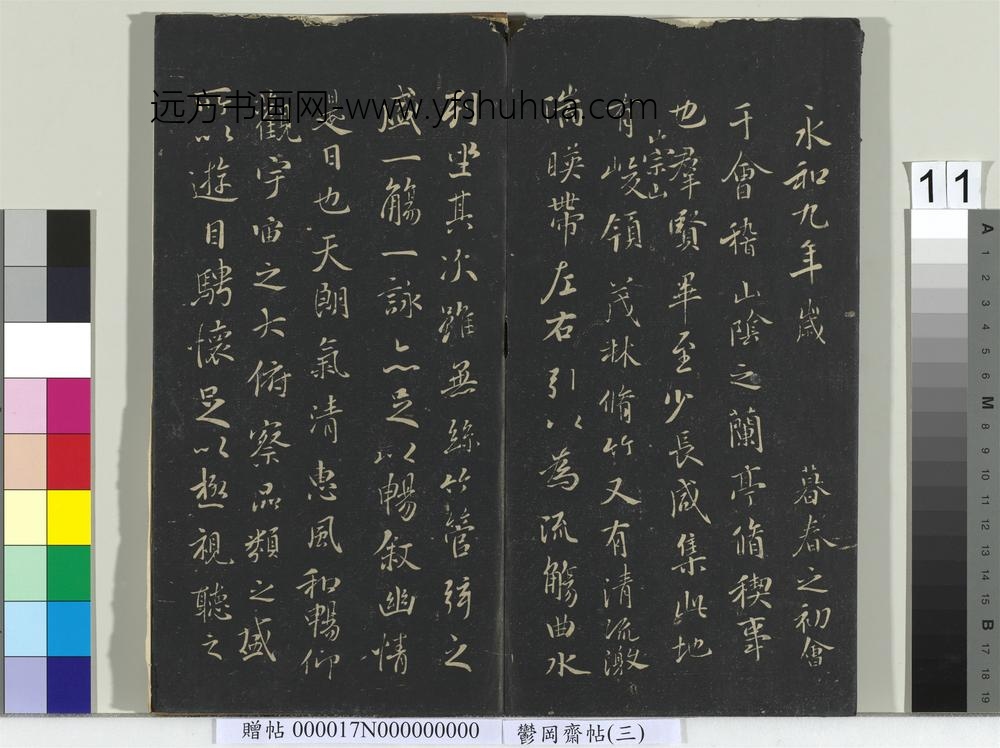 永和九年歲 暮春之初會
于會稽山陰之蘭亭脩稧事
也羣賢畢至少長咸集此地
有崇山峻領茂林脩竹又有清流激
湍暎帶左右引以為流觴曲水
列坐其次雖無絲竹管弦之
盛一觴一詠亦足以暢叙幽情
是日也天朗氣清惠風和暢仰
觀宇宙之大俯察品類之盛
所以遊目騁懷足以極視聽之
远方书画网-www.yfshuhua.com
11
A 1 2 3 4 5 6 M 8 9 10 11 12 13 14 15 B 17 18 19
贈帖 000017N000000000
鬱岡齋帖(三)